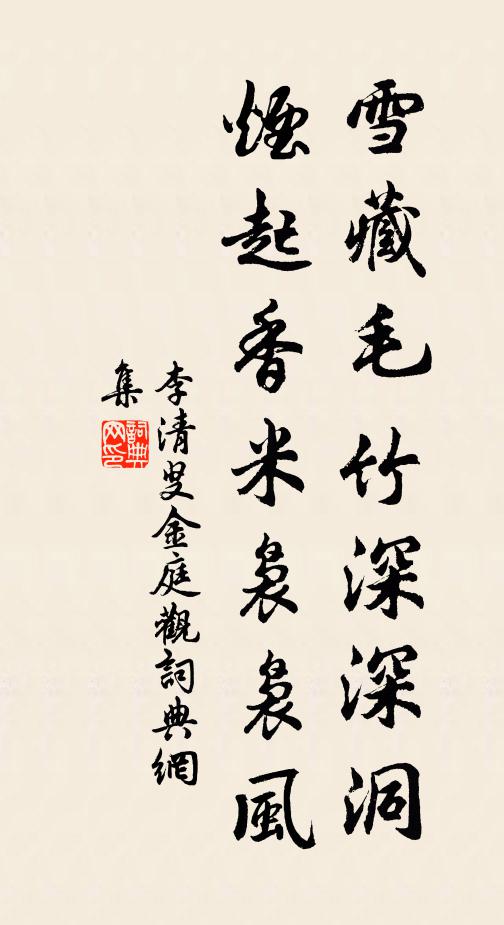 雪藏毛竹深深洞
煙起香米裊裊風
李清叟金庭觀詞典網
集
詞典網印